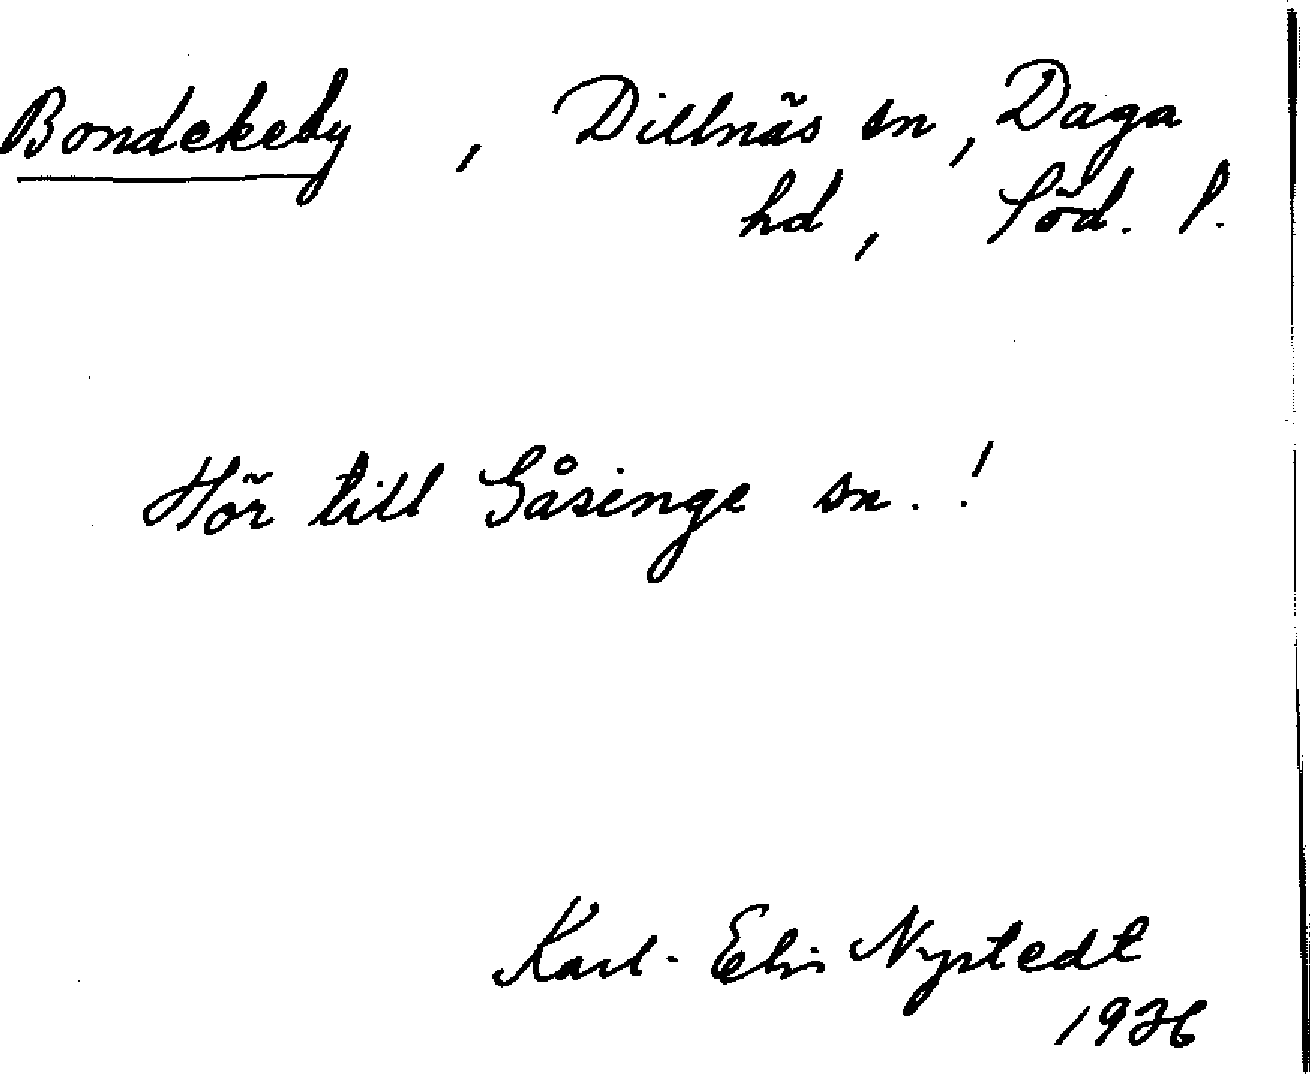 Bondekeby, Dillnäs sn, Daga
hd, Söd. l.
Hör till Gåsinge sn.!
Karl-Elis Nystedt
1936